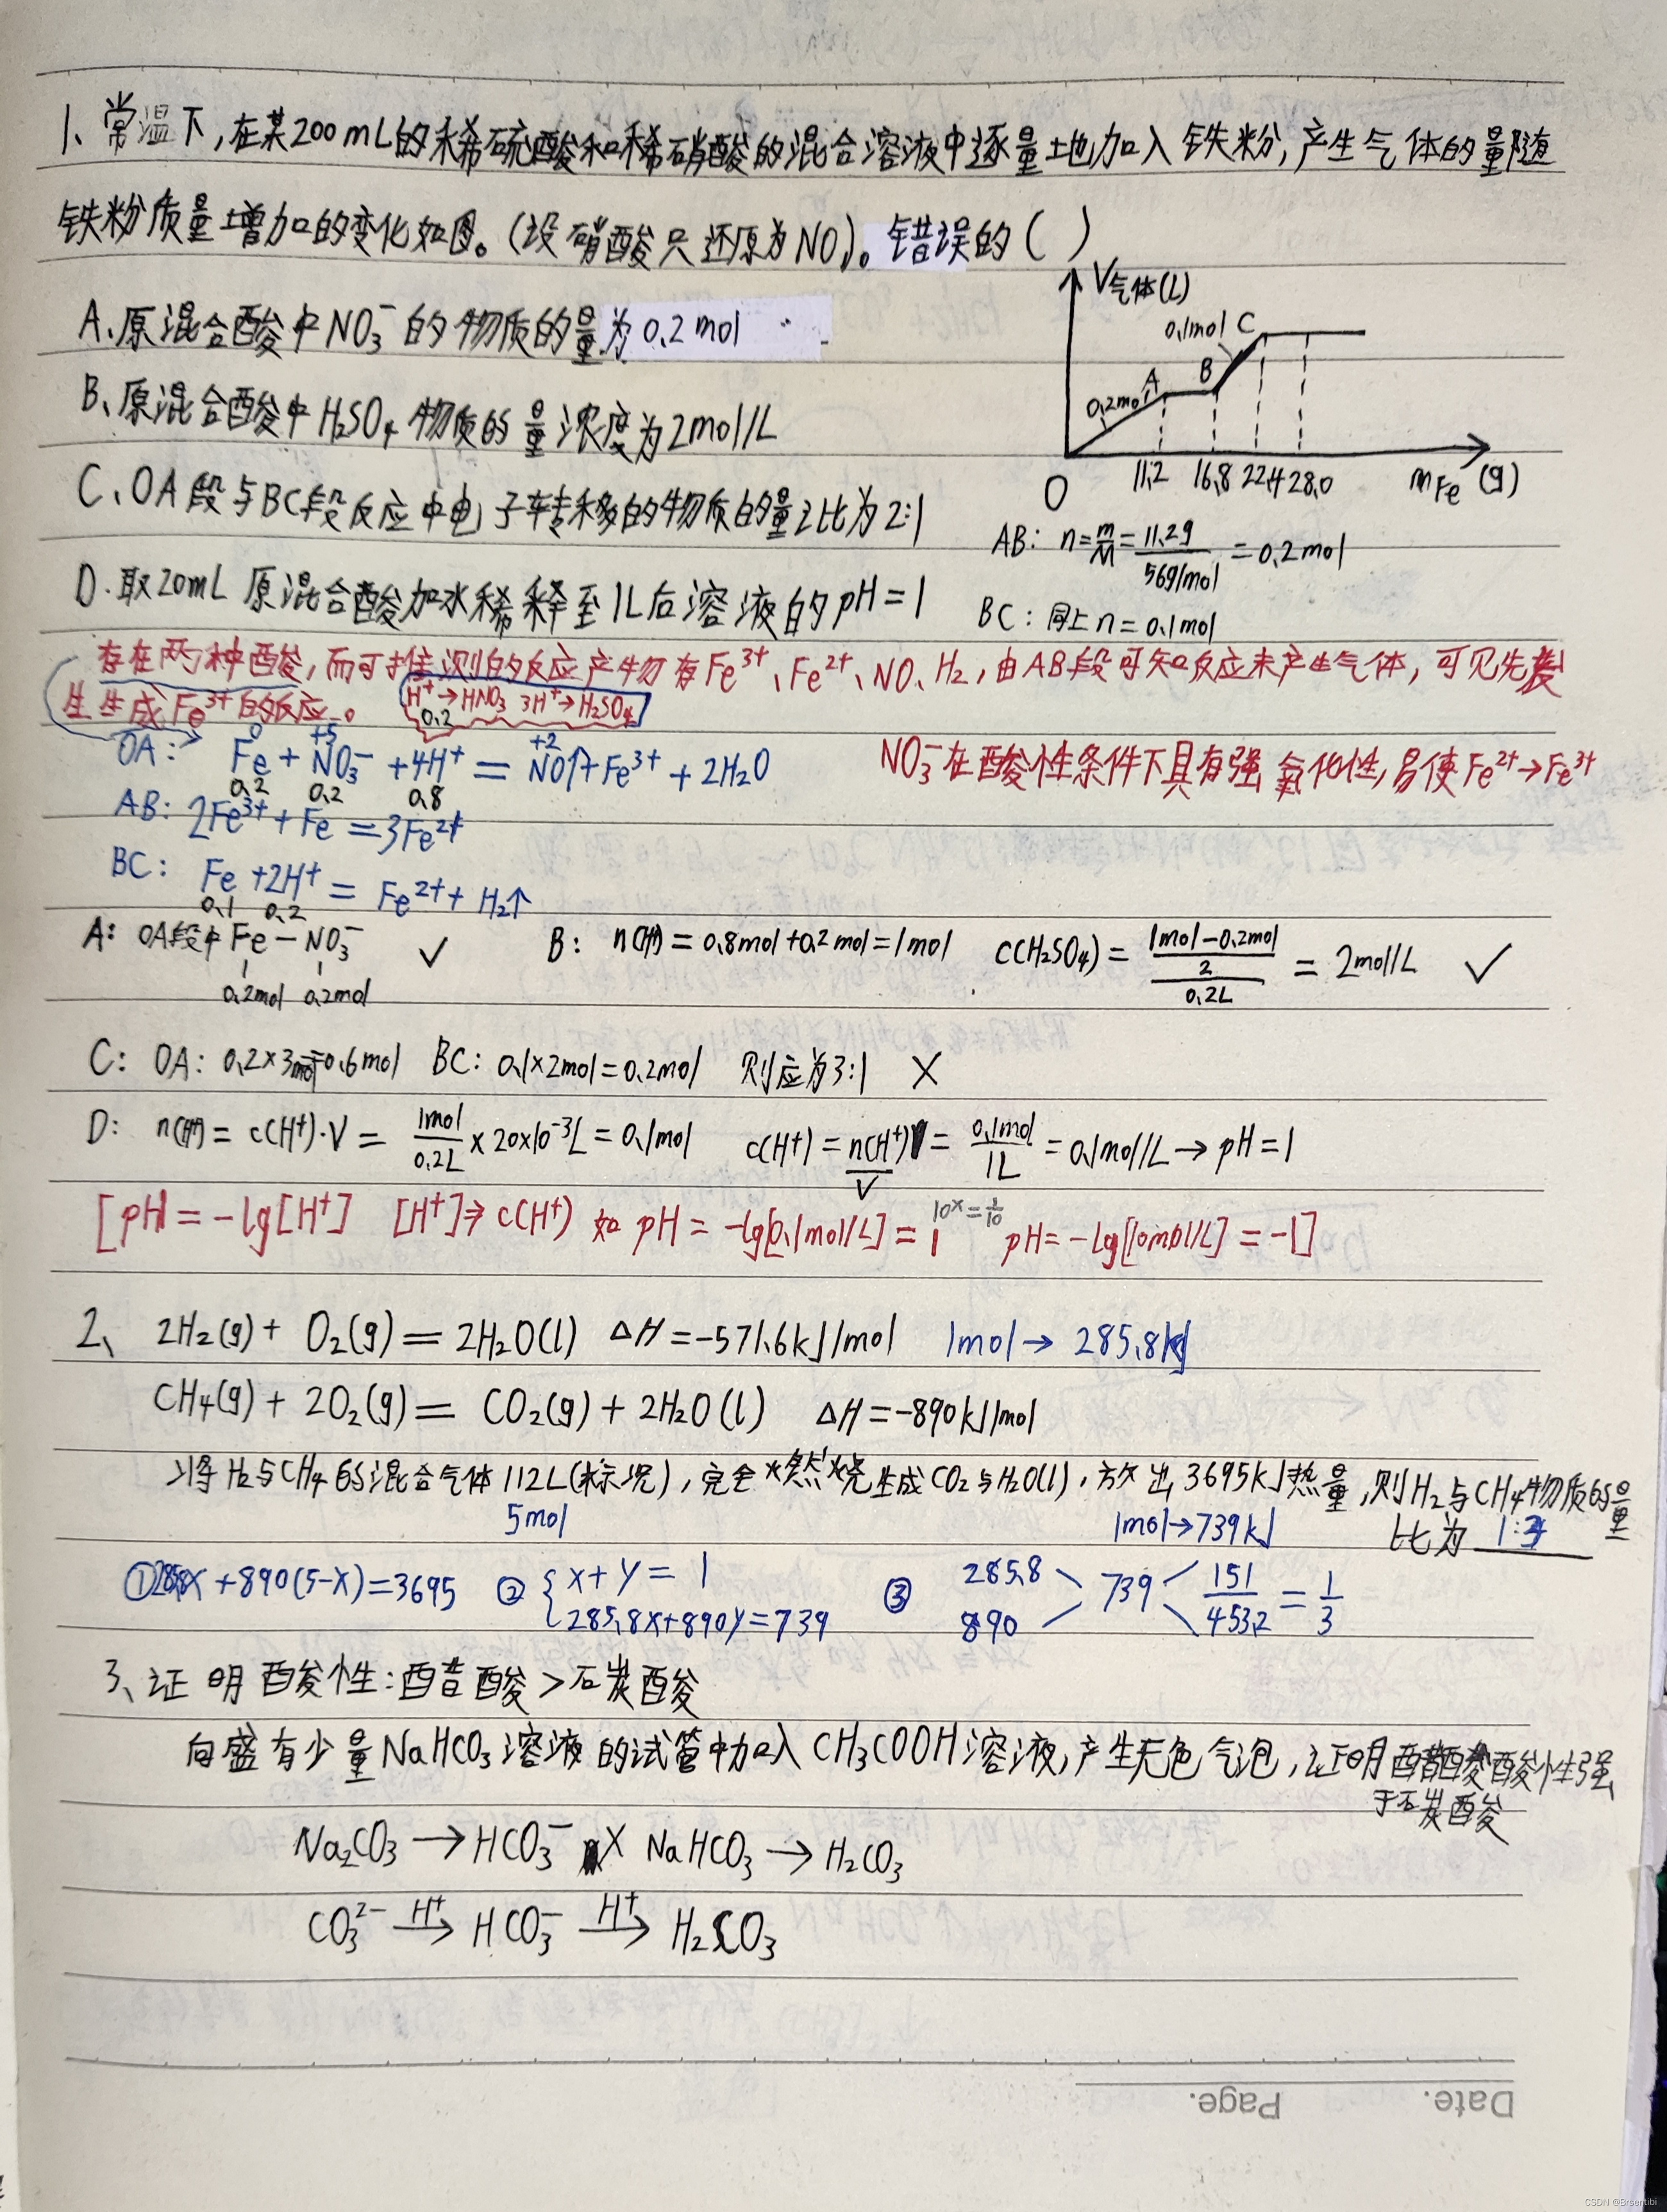 1、常温下,在某200mL的稀硫酸和稀硝酸的混合溶液中逐量地加入铁粉,产生气体的量随
铁粉质量增加的变化如图。(设硝酸只还原为NO)。错误的( )
A、原混合酸中NO₃⁻的物质的量为0.2mol
B、原混合酸中H₂SO₄物质的量浓度为2mol/L
C、OA段与BC段反应中电子转移的物质的量之比为2:1
D.取20mL原混合酸加水稀释至1L后溶液的pH=1
V气体(L)
0.1mol C
A B
0.2mol
O 11.2 16.8 22.4 28.0 mFe (g)
AB: n=m/M=11.2g/56g/mol=0.2mol
BC:同上n=0.1mol
存在两种酸,而可推测的反应产物有Fe³⁺、Fe²⁺、NO、H₂,由AB段可知反应未产生气体,可见先发
生生成Fe³⁺的反应。 H⁺→HNO₃ 3H⁺→H₂SO₄
0.2
0 +5 +2
OA: Fe+NO₃⁻+4H⁺=NO↑+Fe³⁺+2H₂O NO₃⁻在酸性条件下具有强氧化性,易使Fe²⁺→Fe³⁺
0.2 0.2 0.8
AB: 2Fe³⁺+Fe=3Fe²⁺
BC: Fe+2H⁺=Fe²⁺+H₂↑
0.1 0.2
A: OA段中Fe-NO₃⁻ ✓ B: n(H⁺)=0.8mol+0.2mol=1mol c(H₂SO₄)=((1mol-0.2mol)/2)/0.2L=2mol/L ✓
0.2mol 0.2mol
C: OA: 0.2×3mol=0.6mol BC: 0.1×2mol=0.2mol 则应为3:1 ×
D: n(H⁺)=c(H⁺)·V=1mol/0.2L×20×10⁻³L=0.1mol c(H⁺)=n(H⁺)/V=0.1mol/1L=0.1mol/L→pH=1
[pH=-lg[H⁺] [H⁺]⇒c(H⁺) 如pH=-lg[0.1mol/L]=1 10ˣ=1/10 pH=-lg[10mol/L]=-1]
2、 2H₂(g)+O₂(g)=2H₂O(l) ΔH=-571.6kJ/mol 1mol→285.8kJ
CH₄(g)+2O₂(g)=CO₂(g)+2H₂O(l) ΔH=-890kJ/mol
将H₂与CH₄的混合气体112L(标况),完全燃烧生成CO₂与H₂O(l),放出3695kJ热量,则H₂与CH₄物质的量
5mol 1mol→739kJ 比为 1:3
①285.8x+890(5-x)=3695 ②{x+y=1 ③ 285.8 739 151/453.2=1/3
285.8x+890y=739 890
3、证明酸性:醋酸>石炭酸
向盛有少量NaHCO₃溶液的试管中加入CH₃COOH溶液,产生无色气泡,证明醋酸酸性强
于石炭酸
Na₂CO₃→HCO₃⁻ × NaHCO₃→H₂CO₃
CO₃²⁻ H⁺→ HCO₃⁻ H⁺→ H₂CO₃
Date. Page.
CSDN @Brsentibi